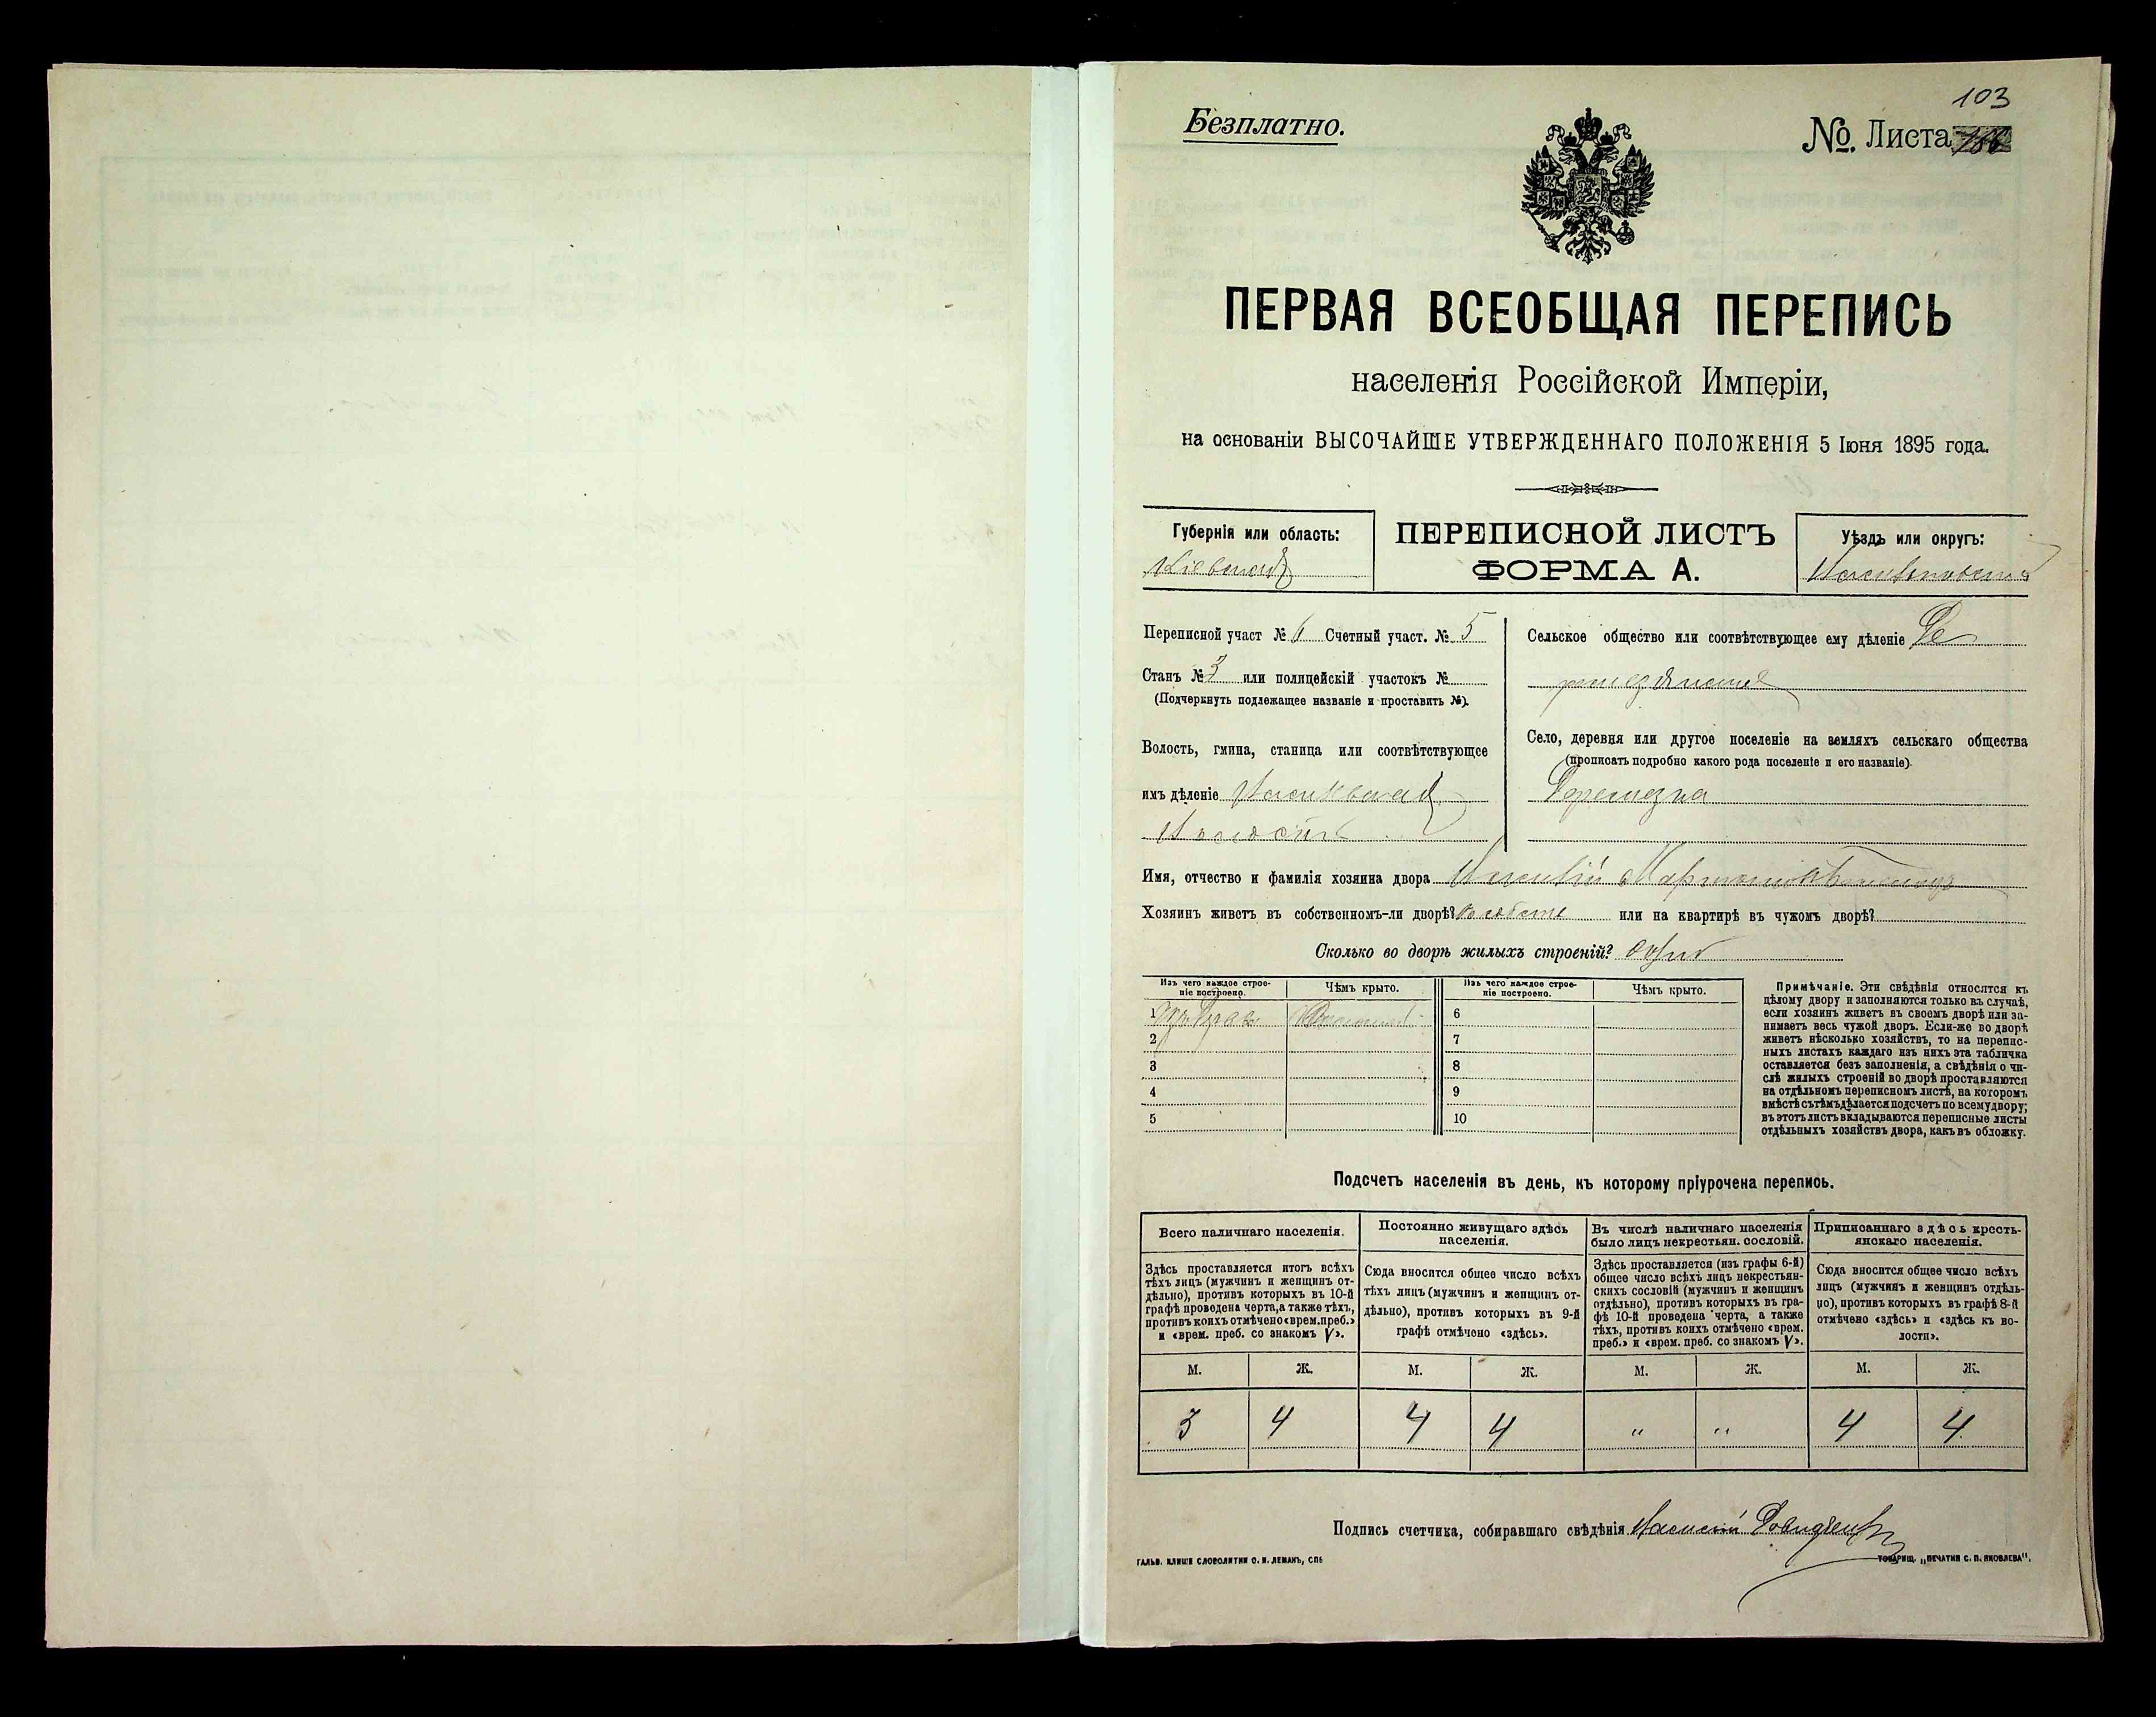 103
Безплатно.
№. Листа
ПЕРВАЯ ВСЕОБЩАЯ ПЕРЕПИСЬ
населенія Россійской Имперіи,
на основаніи ВЫСОЧАЙШЕ УТВЕРЖДЕННАГО ПОЛОЖЕНІЯ 5 Іюня 1895 года.
Губернія или область:
Кіевская
ПЕРЕПИСНОЙ ЛИСТЪ
ФОРМА А.
Уѣздъ или округъ:
Переписной участ № 6 Счетный участ. № 5
Станъ № 3 или полицейскій участокъ №
(Подчеркнуть подлежащее названіе и проставить №).
Волость, гмина, станица или соотвѣтствующее
имъ дѣленіе
Сельское общество или соотвѣтствующее ему дѣленіе
Село, деревня или другое поселеніе на земляхъ сельскаго общества
(прописать подробно какого рода поселеніе и его названіе).
Имя, отчество и фамилія хозяина двора
Хозяинъ живетъ въ собственномъ-ли дворѣ? или на квартирѣ въ чужомъ дворѣ?
Сколько во дворѣ жилыхъ строеній? одно
Изъ чего каждое строе-
ніе построено.
Чѣмъ крыто.
Изъ чего каждое строе-
ніе построено.
Чѣмъ крыто.
1
2
3
4
5
6
7
8
9
10
Примѣчаніе. Эти свѣдѣнія относятся къ
цѣлому двору и заполняются только въ случаѣ,
если хозяинъ живетъ въ своемъ дворѣ или за-
нимаетъ весь чужой дворъ. Если-же во дворѣ
живетъ нѣсколько хозяйствъ, то на перепис-
ныхъ листахъ каждаго изъ нихъ эта табличка
оставляется безъ заполненія, а свѣдѣнія о чи-
слѣ жилыхъ строеній во дворѣ проставляются
на отдѣльномъ переписномъ листѣ, на которомъ
вмѣстѣ съ тѣмъ дѣлается подсчетъ по всему двору;
въ этотъ листъ вкладываются переписные листы
отдѣльныхъ хозяйствъ двора, какъ въ обложку.
Подсчетъ населенія въ день, къ которому пріурочена перепись.
Всего наличнаго населенія.
Постоянно живущаго здѣсь
населенія.
Въ числѣ наличнаго населенія
было лицъ некрестьян. сословій.
Приписаннаго здѣсь кресть-
янскаго населенія.
Здѣсь проставляется итогъ всѣхъ
тѣхъ лицъ (мужчинъ и женщинъ от-
дѣльно), противъ которыхъ въ 10-й
графѣ проведена черта, а также тѣхъ,
противъ коихъ отмѣчено «врем. преб.»
и «врем. преб. со знакомъ V».
Сюда вносится общее число всѣхъ
тѣхъ лицъ (мужчинъ и женщинъ от-
дѣльно), противъ которыхъ въ 9-й
графѣ отмѣчено «здѣсь».
Здѣсь проставляется (изъ графы 6-й)
общее число всѣхъ лицъ некрестьян-
скихъ сословій (мужчинъ и женщинъ
отдѣльно), противъ которыхъ въ гра-
фѣ 10-й проведена черта, а также
тѣхъ, противъ коихъ отмѣчено «врем.
преб.» и «врем. преб. со знакомъ V».
Сюда вносится общее число всѣхъ
лицъ (мужчинъ и женщинъ отдѣль-
но), противъ которыхъ въ графѣ 8-й
отмѣчено «здѣсь» и «здѣсь къ во-
лости».
М. Ж. М. Ж. М. Ж. М. Ж.
3 4 4 4 " " 4 4
Подпись счетчика, собиравшаго свѣдѣнія
ГАЛЬВ. КЛИШЕ СЛОВОЛИТНИ О. И. ЛЕМАНЪ, СПБ
ТОВАРИЩ. „ПЕЧАТНЯ С. П. ЯКОВЛЕВА".